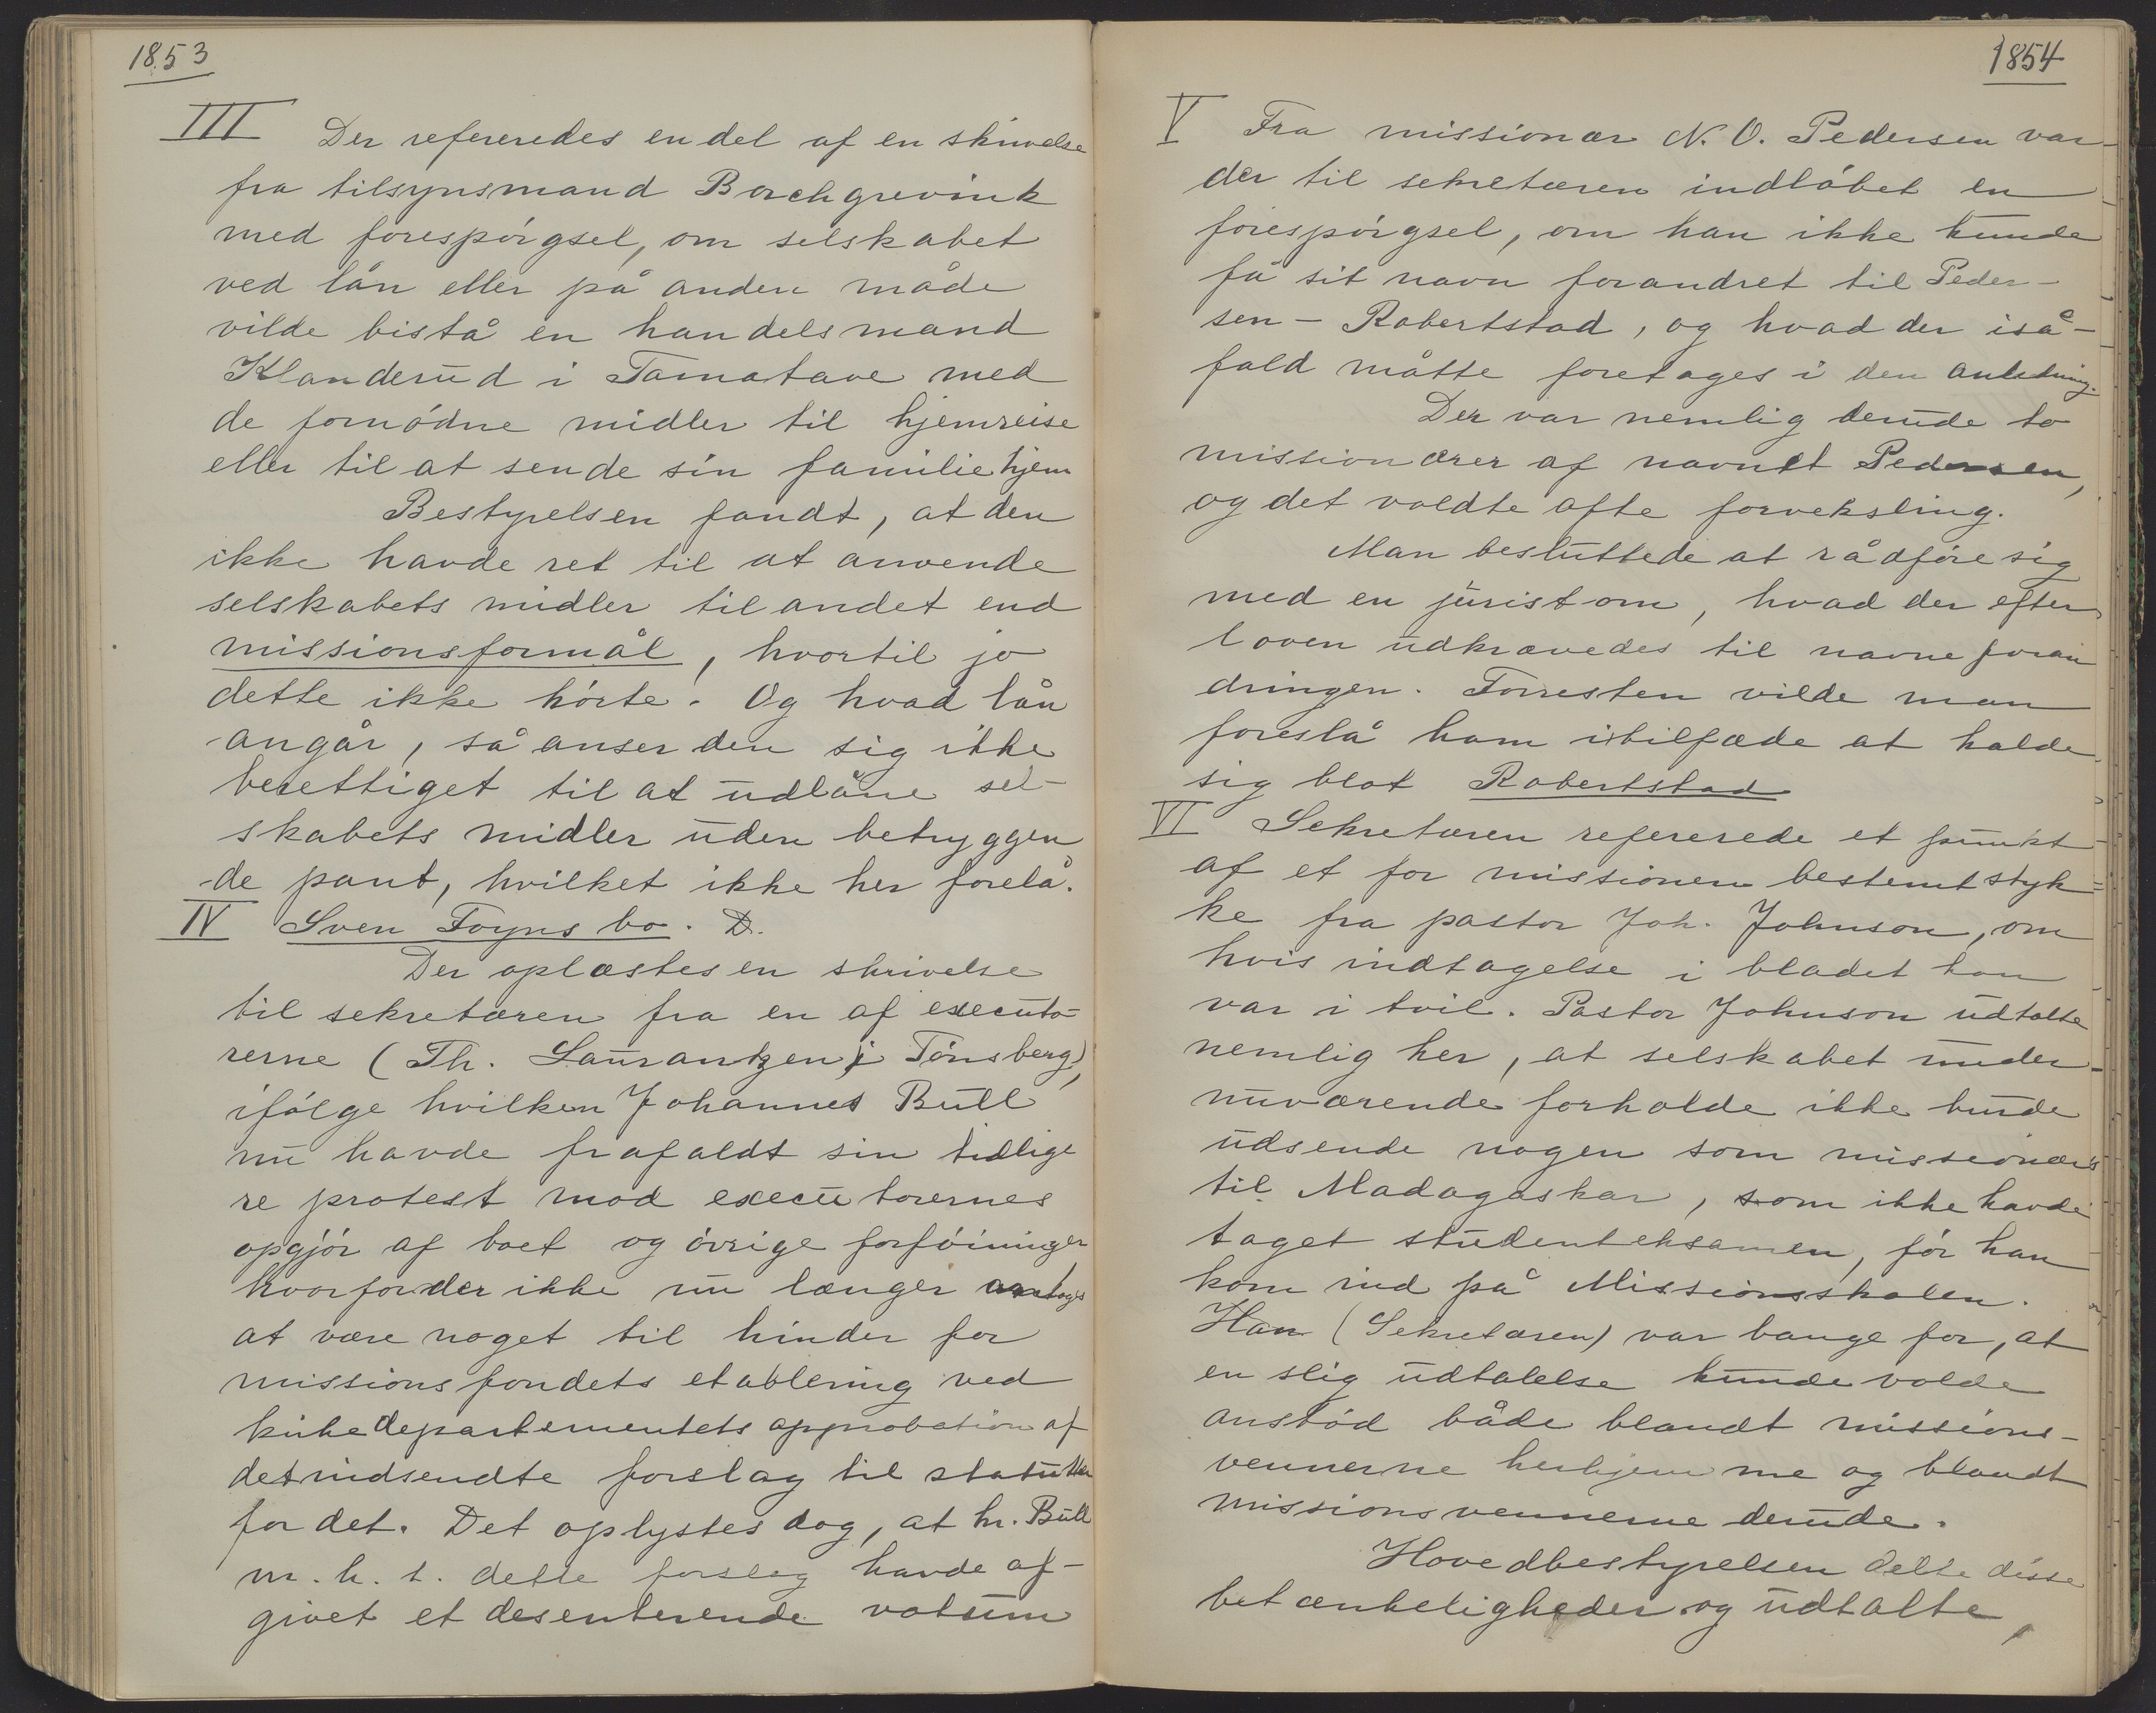 1853
III Der refereredes en del af en skrivelse
fra tilsynsmand Borchgrevink
med forespörgsel, om selskabet
ved lån eller på anden måde
vilde bistå en handelsmand
Klanderud i Tamatave med
de fornödne midler til hjemreise
eller til at sende sin familie hjem
Bestyrelsen fandt, at den
ikke havde ret til at anvende
selskabets midler til andet end
missionsformål, hvortil jo
dette ikke hörte. Og hvad lån
angår, så anser den sig ikke
berettiget til at udlåne sel-
skabets midler uden betryggen
-de pant, hvilket ikke her forelå.
IV Sven Foyns bo. D.
Der oplæstes en skrivelse
til sekretæren fra en af executo-
rerne (Th. Laurantzen i Tönsberg),
ifölge hvilken Johannes Bull
nu havde frafaldt sin tidlige
re protest mod executorernes
opgjör af boet og övrige forföininger
hvorfor der ikke nu længer antoges
at være noget til hinder for
missionsfondets etablering ved
kirkedepartementets approbation af
det indsendte forslag til statutter
for det. Det oplystes dog, at hr. Bull
m. h. t. dette forslag havde af-
givet et desenterende votum
1854
V Fra missionær N. O. Pedersen var
der til sekretæren indlöbet en
forespörgsel, om han ikke kunde
få sit navn forandret til Peder-
sen - Robertstad, og hvad der iså-
fald måtte foretages i den anledning.
Der var nemlig derude to
missionærer af navnet Pedersen,
og det voldte ofte forveksling.
Man besluttede at rådföre sig
med en jurist om, hvad der efter
loven udkrævedes til navneforan
dringen. Forresten vilde man
foreslå ham istilfæde at kalde
sig blot Robertstad
VI Sekretæren refererede et punkt
af et for missionen bestemt styk-
ke fra pastor Joh. Johnson, om
hvis indtagelse i bladet han
var i tvil. Pastor Johnson udtalte
nemlig her, at selskabet under
nuværende forholde ikke burde
udsende nogen som missionær
til Madagaskar, som ikke havde
taget studenteksamen, för han
kom ind på Missionsskolen.
Han (Sekretæren) var bange for, at
en slig udtalelse kunde volde
anstöd både blandt missions-
vennerne herhjemme og blandt
missionsvennerne derude.
Hovedbestyrelsen delte disse
betænkeligheder og udtalte,